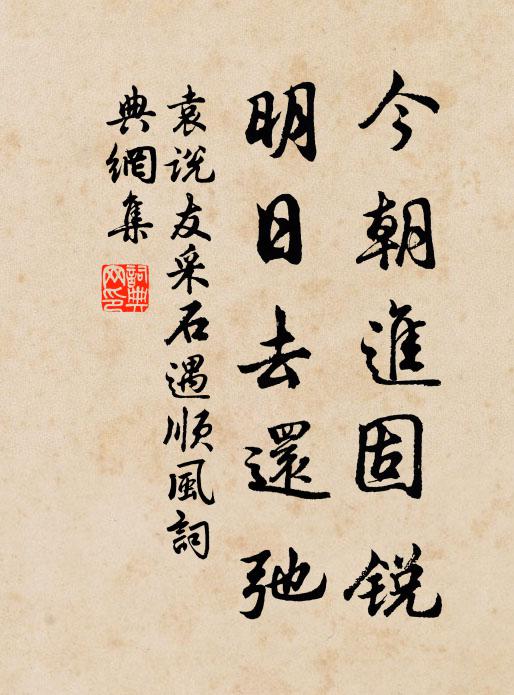 今朝進固鋭
明日去還弛
袁説友采石遇順風詞
典網集
詞典
网印